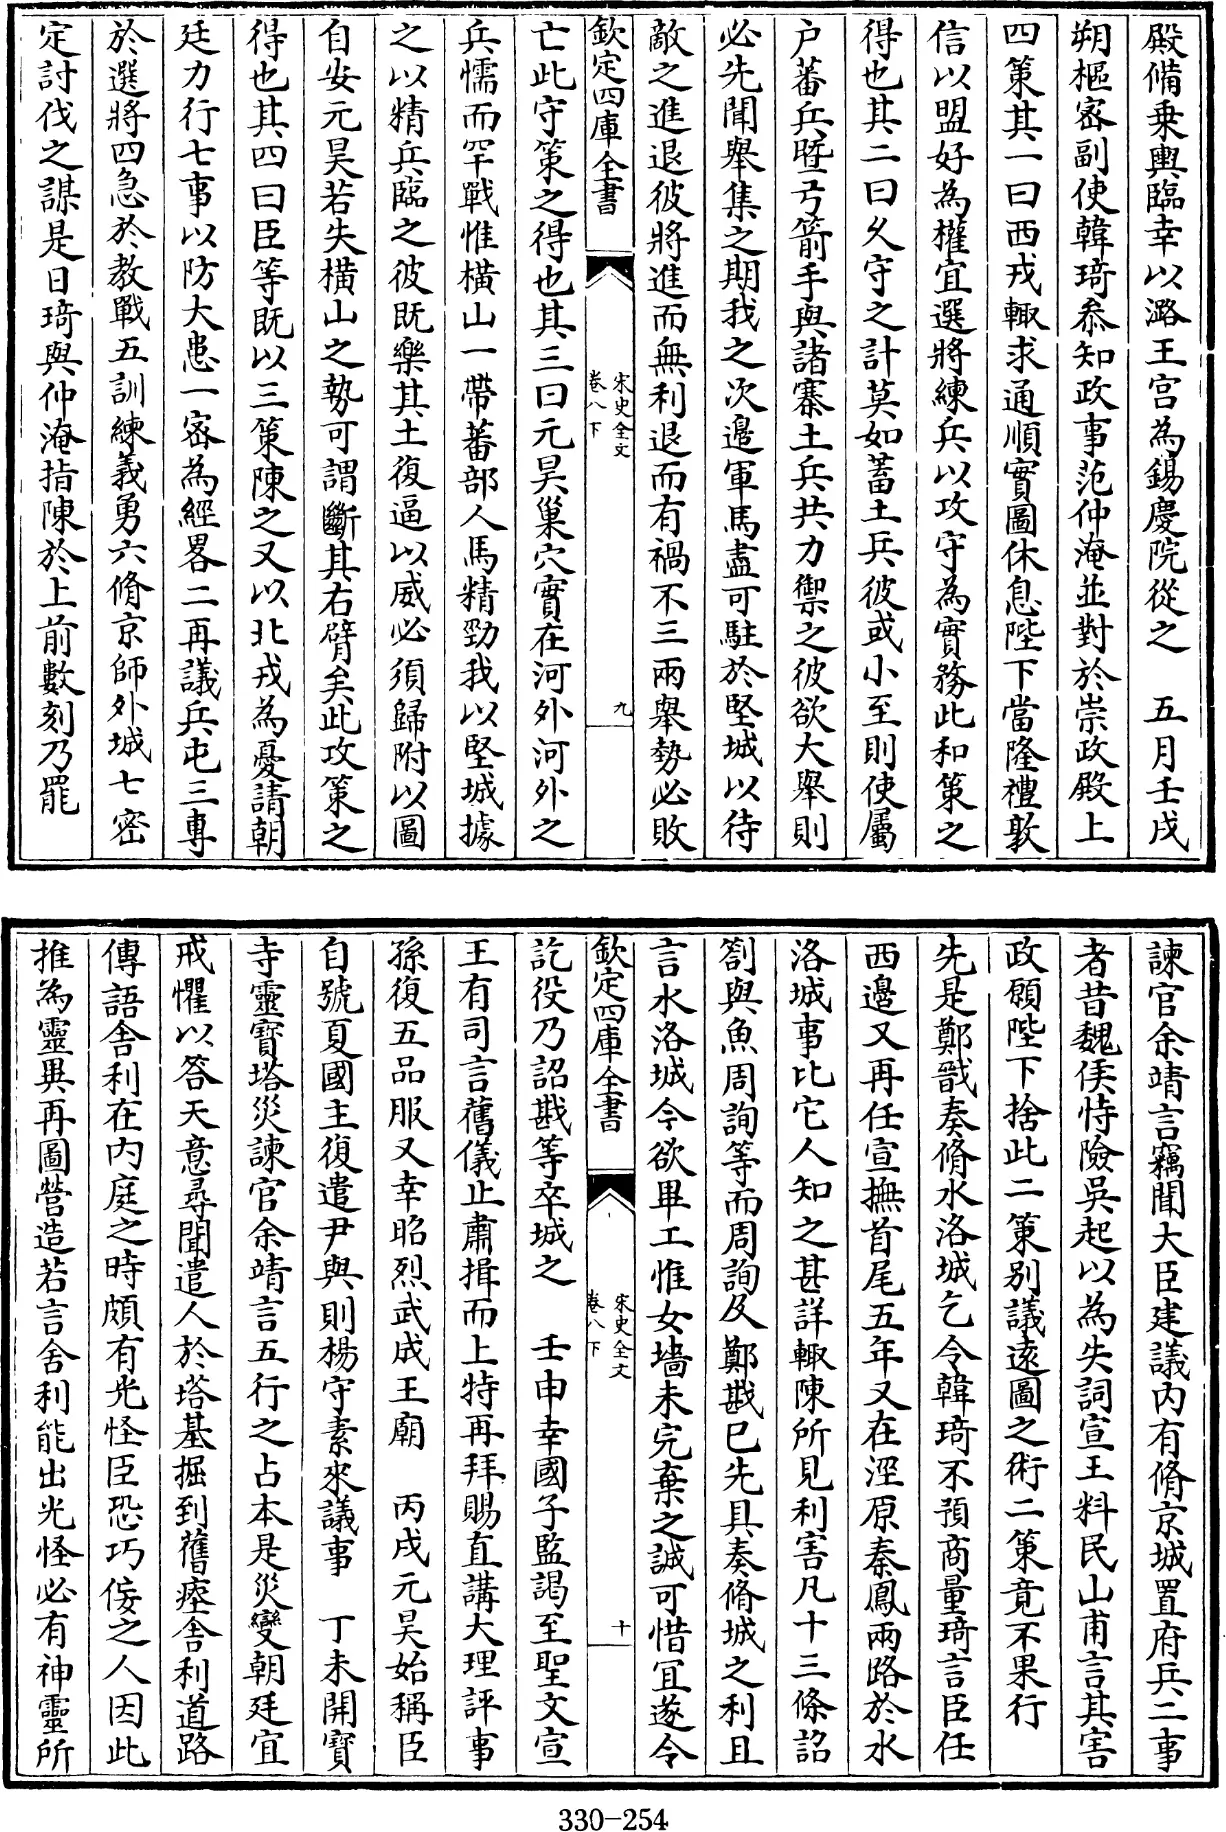 殿備乗輿臨幸以潞王宫為錫慶院從之　五月壬戌
朔樞宻副使韓琦叅知政事范仲淹並對於崇政殿上
四策其一曰西戎輙求通順實圖休息陛下當隆禮敦
信以盟好為權宜選將練兵以攻守為實務此和策之
得也其二曰乆守之計莫如蓄土兵彼或小至則使屬
户蕃兵暨弓箭手與諸寨土兵共力禦之彼欲大舉則
必先聞舉集之期我之次邉軍馬盡可駐於堅城以待
敵之進退彼將進而無利退而有禍不三兩舉勢必敗
欽定四庫全書
宋史全文
卷八下
九
亡此守策之得也其三曰元昊巢穴實在河外河外之
兵懦而罕戰惟横山一帶蕃部人馬精勁我以堅城據
之以精兵臨之彼既樂其土復逼以威必須歸附以圖
自安元昊若失横山之勢可謂斷其右臂矣此攻策之
得也其四曰臣等既以三策陳之又以北戎為憂請朝
廷力行七事以防大患一宻為經畧二再議兵屯三專
於選將四急於教戰五訓練義勇六脩京師外城七密
定討伐之謀是日琦與仲淹指陳於上前數刻乃罷
諫官余靖言竊聞大臣建議内有脩京城置府兵二事
者昔魏侯恃險吳起以為失詞宣王料民山甫言其害
政願陛下捨此二策别議逺圖之術二策竟不果行
先是鄭戩奏脩水洛城乞令韓琦不預商量琦言臣任
西邉又再任宣撫首尾五年又在涇原秦鳳兩路於水
洛城事比它人知之甚詳輙陳所見利害凡十三條詔
劄與魚周詢等而周詢及鄭戡已先具奏脩城之利且
言水洛城今欲畢工惟女墻未完棄之誠可惜宜遂令
欽定四庫全書
宋史全文
卷八下
十
訖役乃詔戡等卒城之　壬申幸國子監謁至聖文宣
王有司言舊儀止肅揖而上特再拜賜直講大理評事
孫復五品服又幸昭烈武成王廟　丙戌元昊始稱臣
自號夏國主復遣尹與則楊守素來議事　丁未開寳
寺靈寳塔災諫官余靖言五行之占本是災變朝廷宜
戒懼以答天意尋聞遣人於塔基掘到舊瘞舍利道路
傳語舍利在内庭之時頗有光怪臣恐巧佞之人因此
推為靈異再圖營造若言舍利能出光怪必有神靈所
330-254